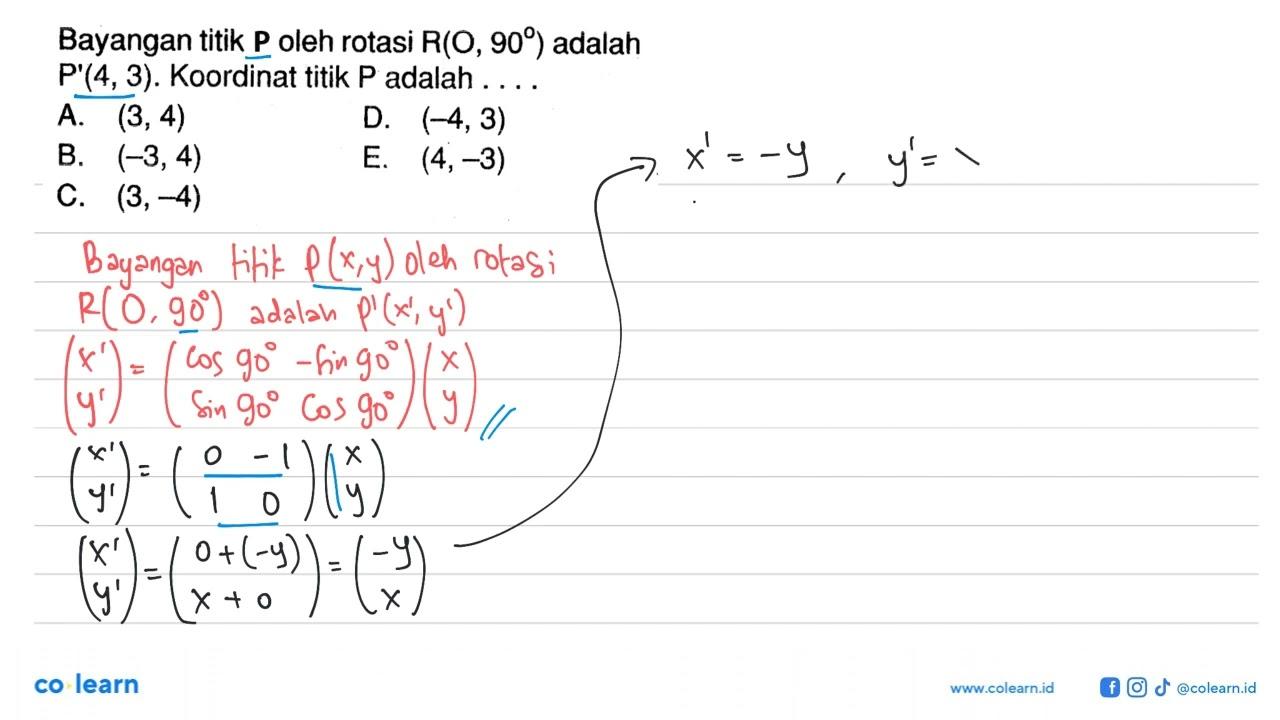 Bayangan titik P oleh rotasi R(O, 90°) adalah
P'(4, 3). Koordinat titik P adalah . . . .
A. (3, 4)
B. (–3, 4)
C. (3, –4)
D. (–4, 3)
E. (4, –3)
Bayangan titik P(x,y) oleh rotasi
R(O, 90°) adalah P'(x', y')
(x' y') = (cos 90° -sin 90° sin 90° cos 90°)(x y)
(x' y') = (0 -1 1 0)(x y)
(x' y') = (0+(-y) x+0) = (-y x)
x' = -y, y' =
co learn
www.colearn.id
@colearn.id